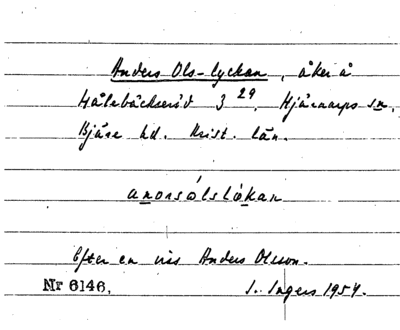 Anders Ols-lyckan, åker å
Hålebäckseröd 3 29. Hjärnarps sn,
Bjäre hd. Krist. län.
anorsólslókan
Efter en viss Anders Olsson.
Nr 6146. I. Ingers 1954.